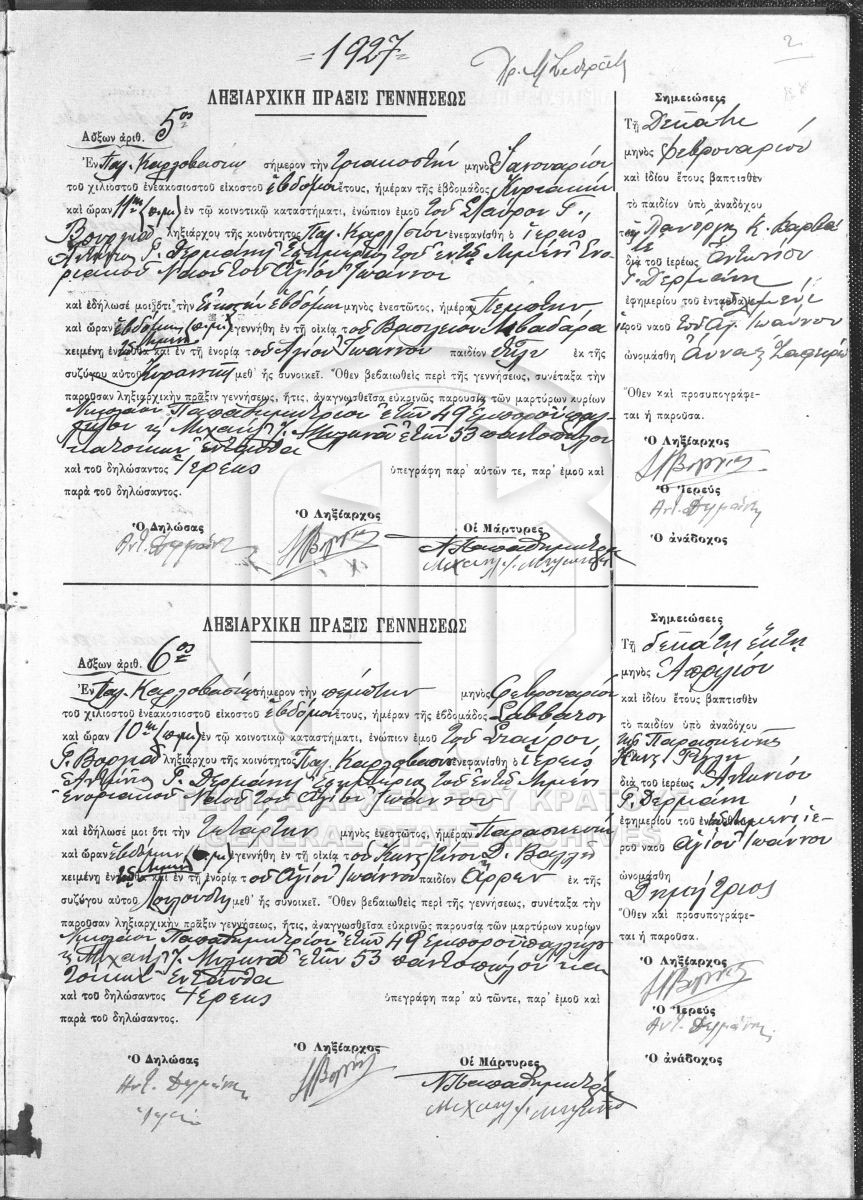 =1927=
2
ΛΗΞΙΑΡΧΙΚΗ ΠΡΑΞΙΣ ΓΕΝΝΗΣΕΩΣ
Αὔξων ἀριθ. 5ος
Ἐν Παλ. Καρλοβασίῳ σήμερον τὴν τριακοστὴν μηνὸς Ἰανουαρίου
τοῦ χιλιοστοῦ ἐνεακοσιοστοῦ εἰκοστοῦ ἑβδόμου ἔτους, ἡμέραν τῆς ἑβδομάδος Κυριακὴν
καὶ ὥραν 11ην (π.μ.) ἐν τῷ κοινοτικῷ καταστήματι, ἐνώπιον ἐμοῦ τοῦ Σταύρου Γ.
ληξιάρχου τῆς κοινότητος Παλ. Καρλ/σίου ἐνεφανίσθη ὁ ἱερεὺς
Ἀντώνιος Γ. Δερμάνης Ἐφημέριος τοῦ ἐντὸς Λιμένι Ἐνο-
ριακοῦ Ναοῦ τοῦ Ἁγίου Ἰωάννου
καὶ ἐδήλωσέ μοι ὅτι τὴν Εἰκοστὴν ἑβδόμην μηνὸς ἐνεστῶτος, ἡμέραν Πέμπτην
καὶ ὥραν ἑβδόμην (π.μ.) ἐγεννήθη ἐν τῇ οἰκίᾳ τοῦ
κειμένῃ ἐνταῦθα καὶ ἐν τῇ ἐνορίᾳ τοῦ Ἁγίου Ἰωάννου παιδίον θῆλυ ἐκ τῆς
συζύγου αὐτοῦ μεθ' ἧς συνοικεῖ. Ὅθεν βεβαιωθεὶς περὶ τῆς γεννήσεως, συνέταξα τὴν
παροῦσαν ληξιαρχικὴν πρᾶξιν γεννήσεως, ἥτις, ἀναγνωσθεῖσα εὐκρινῶς παρουσίᾳ τῶν μαρτύρων κυρίων
Νικολάου Παπαδημητρίου ἐτῶν 49 Ἐμποροϋπαλ-
λήλου κ Μιχαὴλ Ἰ. ἐτῶν 53 παντοπώλου
κατοίκων ἐνταῦθα
καὶ τοῦ δηλώσαντος Ἱερέως ὑπεγράφη παρ' αὐτῶν τε, παρ' ἐμοῦ καὶ
παρὰ τοῦ δηλώσαντος.
Ὁ Δηλώσας Ὁ Ληξίαρχος Οἱ Μάρτυρες
Ἀντ. Δερμάνης Ν Παπαδημητρίου
Σημειώσεις
Τῇ Δεκάτῃ
μηνὸς Φεβρουαρίου
καὶ ἰδίου ἔτους βαπτισθὲν
τὸ παιδίον ὑπὸ ἀναδόχου
διὰ τοῦ ἱερέως Ἀντωνίου
Γ. Δερμάνη
ἐφημερίου τοῦ
ἱεροῦ ναοῦ τοῦ Ἁγ. Ἰωάννου
ὠνομάσθη Ἄννα
Ὅθεν καὶ προσυπογράφε-
ται ἡ παροῦσα.
Ὁ Ληξίαρχος
Ὁ Ἱερεύς
Ἀντ. Δερμάνης
Ὁ ἀνάδοχος
ΛΗΞΙΑΡΧΙΚΗ ΠΡΑΞΙΣ ΓΕΝΝΗΣΕΩΣ
Αὔξων ἀριθ. 6ος
Ἐν Παλ. Καρλοβασίῳ σήμερον τὴν πέμπτην μηνὸς Φεβρουαρίου
τοῦ χιλιοστοῦ ἐνεακοσιοστοῦ εἰκοστοῦ ἑβδόμου ἔτους, ἡμέραν τῆς ἑβδομάδος Σάββατον
καὶ ὥραν 10ην (π.μ.) ἐν τῷ κοινοτικῷ καταστήματι, ἐνώπιον ἐμοῦ τοῦ Σταύρου
ληξιάρχου τῆς κοινότητος Παλ. Καρλοβασίου ἐνεφανίσθη ὁ ἱερεὺς
Ἀντώνιος Γ. Δερμάνης Ἐφημέριος τοῦ ἐντὸς Λιμένι
Ἐνοριακοῦ Ναοῦ τοῦ Ἁγίου Ἰωάννου
ΓΕΝΙΚΑ ΑΡΧΕΙΑ ΤΟΥ ΚΡΑΤΟΥΣ
GENERAL STATE ARCHIVES
καὶ ἐδήλωσέ μοι ὅτι τὴν Τετάρτην μηνὸς ἐνεστῶτος, ἡμέραν Παρασκευὴν
καὶ ὥραν ἑβδόμην ἐγεννήθη ἐν τῇ οἰκίᾳ τοῦ Κωνσ/τίνου Δ.
κειμένῃ ἐνταῦθα καὶ ἐν τῇ ἐνορίᾳ τοῦ Ἁγίου Ἰωάννου παιδίον Ἄρρεν ἐκ τῆς
συζύγου αὐτοῦ μεθ' ἧς συνοικεῖ. Ὅθεν βεβαιωθεὶς περὶ τῆς γεννήσεως, συνέταξα τὴν
παροῦσαν ληξιαρχικὴν πρᾶξιν γεννήσεως, ἥτις, ἀναγνωσθεῖσα εὐκρινῶς παρουσίᾳ τῶν μαρτύρων κυρίων
Νικολάου Παπαδημητρίου ἐτῶν 49 Ἐμποροϋπαλλήλου
κ Μιχαὴλ Ἰ. ἐτῶν 53 παντοπώλου κα-
τοίκων ἐνταῦθα
καὶ τοῦ δηλώσαντος Ἱερέως ὑπεγράφη παρ' αὐτῶντε, παρ' ἐμοῦ καὶ
παρὰ τοῦ δηλώσαντος.
Ὁ Δηλώσας Ὁ Ληξίαρχος Οἱ Μάρτυρες
Ἀντ. Δερμάνης Ν Παπαδημητρίου
Σημειώσεις
Τῇ δεκάτῃ ἕκτῃ
μηνὸς Ἀπριλίου
καὶ ἰδίου ἔτους βαπτισθὲν
τὸ παιδίον ὑπὸ ἀναδόχου
τῆς Παρασκευῆς
διὰ τοῦ ἱερέως Ἀντωνίου
Γ. Δερμάνη
ἐφημερίου τοῦ
ροῦ ναοῦ Ἁγίου Ἰωάννου
ὠνομάσθη
Δημήτριος
Ὅθεν καὶ προσυπογράφε-
ται ἡ παροῦσα.
Ὁ Ληξίαρχος
Ὁ Ἱερεύς
Ἀντ. Δερμάνης
Ὁ ἀνάδοχος